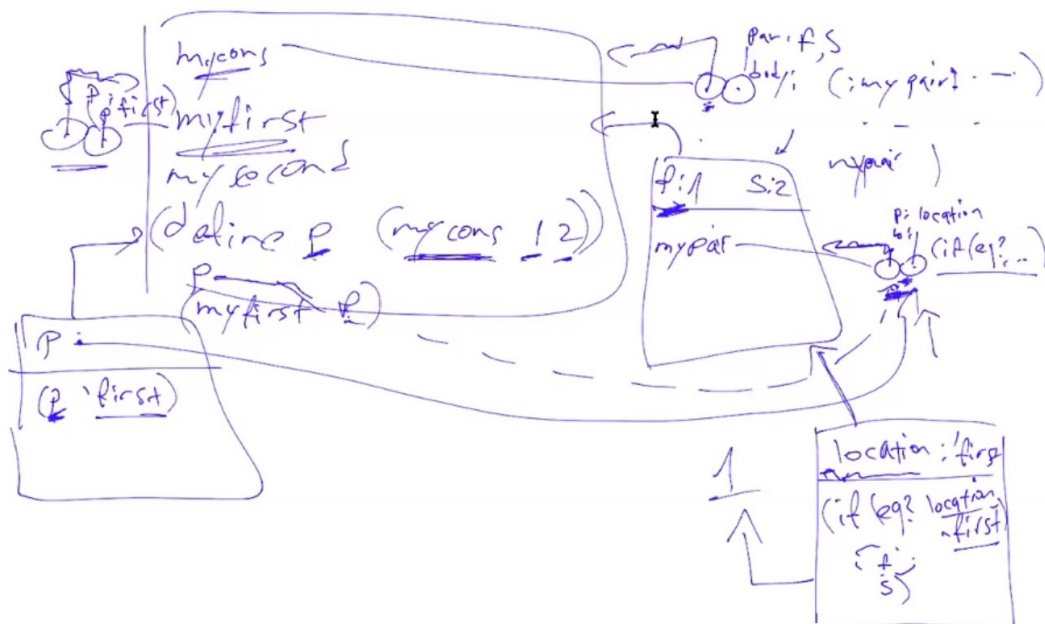 mycons
myfirst
mysecond
(define p (mycons 1 2))
p
(myfirst p)
p 'first)
p
p :
(p 'first)
par: f, s
body: (: mypair! ...
mypair )
f:1 s:2
mypair
p: location
(if (eq? ...)
location : 'first
(if (eq? location
'first)
f
s)
1